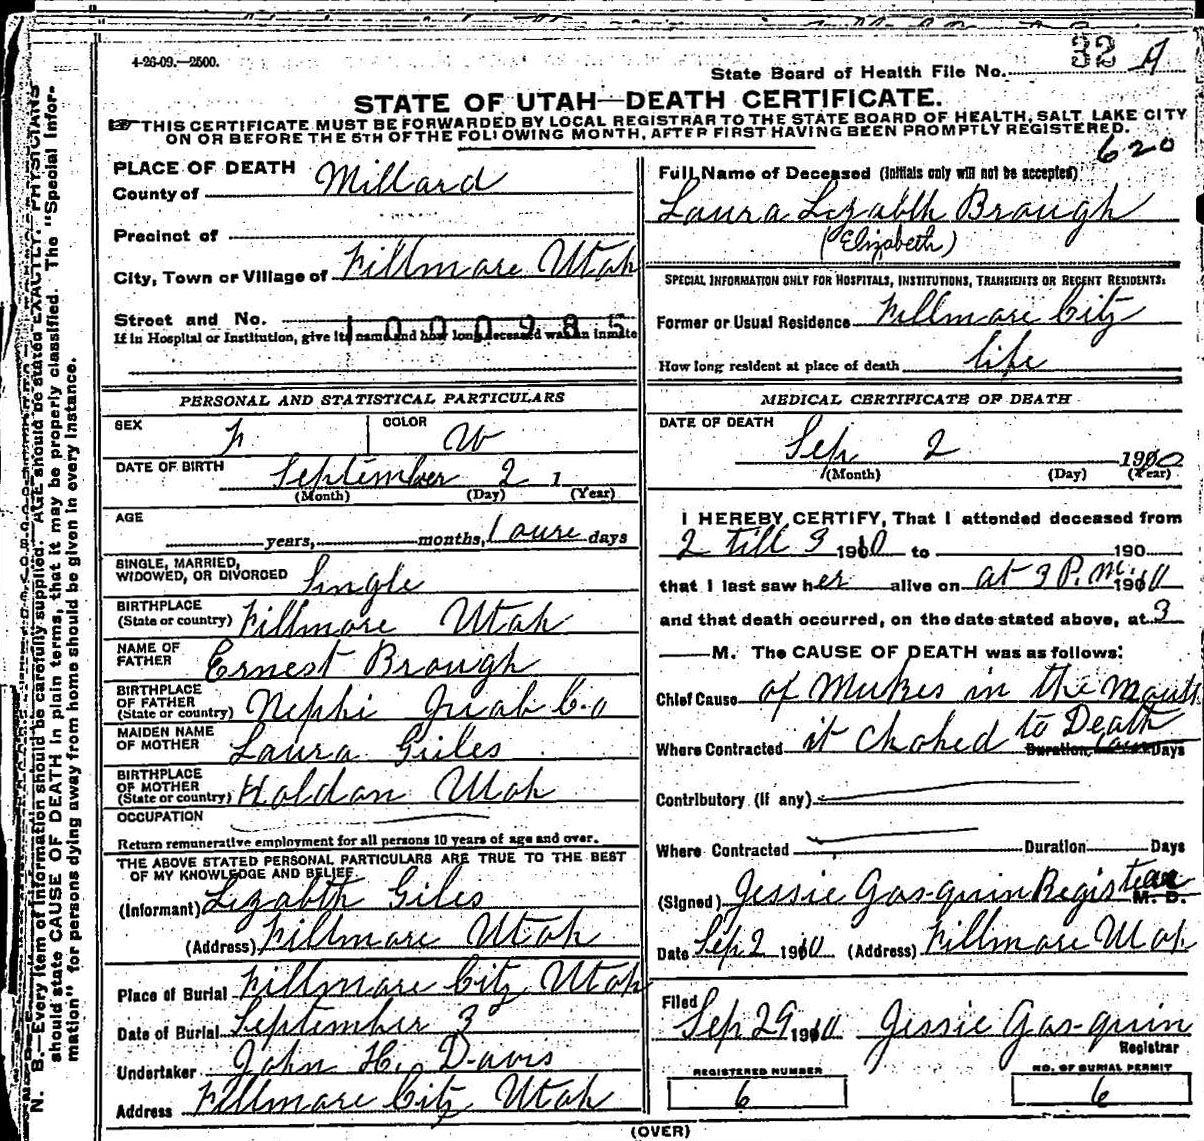 4-26-09.—2500.
State Board of Health File No. 32
STATE OF UTAH—DEATH CERTIFICATE.
THIS CERTIFICATE MUST BE FORWARDED BY LOCAL REGISTRAR TO THE STATE BOARD OF HEALTH, SALT LAKE CITY
ON OR BEFORE THE 5TH OF THE FOLLOWING MONTH, AFTER FIRST HAVING BEEN PROMPTLY REGISTERED.
620
PLACE OF DEATH
County of Millard
Precinct of
City, Town or Village of Fillmore Utah
Street and No.
1000985
If in Hospital or Institution, give its name and how long deceased was an inmate
Full Name of Deceased (Initials only will not be accepted)
Laura Lezabth Brough
(Elizabeth)
SPECIAL INFORMATION ONLY FOR HOSPITALS, INSTITUTIONS, TRANSIENTS OR RECENT RESIDENTS:
Former or Usual Residence Fillmore City
How long resident at place of death life
PERSONAL AND STATISTICAL PARTICULARS
SEX F COLOR W
DATE OF BIRTH September 2 1
(Month) (Day) (Year)
AGE
years, months, 1 oure days
SINGLE, MARRIED,
WIDOWED, OR DIVORCED Single
BIRTHPLACE
(State or country) Fillmore Utah
NAME OF
FATHER Ernest Brough
BIRTHPLACE
OF FATHER
(State or country) Nephi Juab Co
MAIDEN NAME
OF MOTHER Laura Giles
BIRTHPLACE
OF MOTHER
(State or country) Holdan Utah
OCCUPATION
Return remunerative employment for all persons 10 years of age and over.
THE ABOVE STATED PERSONAL PARTICULARS ARE TRUE TO THE BEST
OF MY KNOWLEDGE AND BELIEF.
(Informant) Lezabth Giles
(Address) Fillmore Utah
Place of Burial Fillmore City Utah
Date of Burial September 3
Undertaker John H. Davis
Address Fillmore City Utah
MEDICAL CERTIFICATE OF DEATH
DATE OF DEATH
Sep 2 1910
(Month) (Day) (Year)
I HEREBY CERTIFY, That I attended deceased from
2 till 3 1910 to 190
that I last saw her alive on at 3 P.m. 1910
and that death occurred, on the date stated above, at 3
M. The CAUSE OF DEATH was as follows:
Chief Cause of Mukes in the mouth
Where Contracted it choked to Death Duration Days
Contributory (if any)
Where Contracted Duration Days
(Signed) Jessie Gas-quin Registear M. D.
Date Sep 2 1910 (Address) Fillmore Utah
Filed
Sep 29 1910 Jessie Gas-quin
Registrar
REGISTERED NUMBER
6
NO. OF BURIAL PERMIT
6
(OVER)
N. B.—Every item of information should be carefully supplied. AGE should be stated EXACTLY. PHYSICIANS
should state CAUSE OF DEATH in plain terms, that it may be properly classified. The "Special Infor-
mation" for persons dying away from home should be given in every instance.